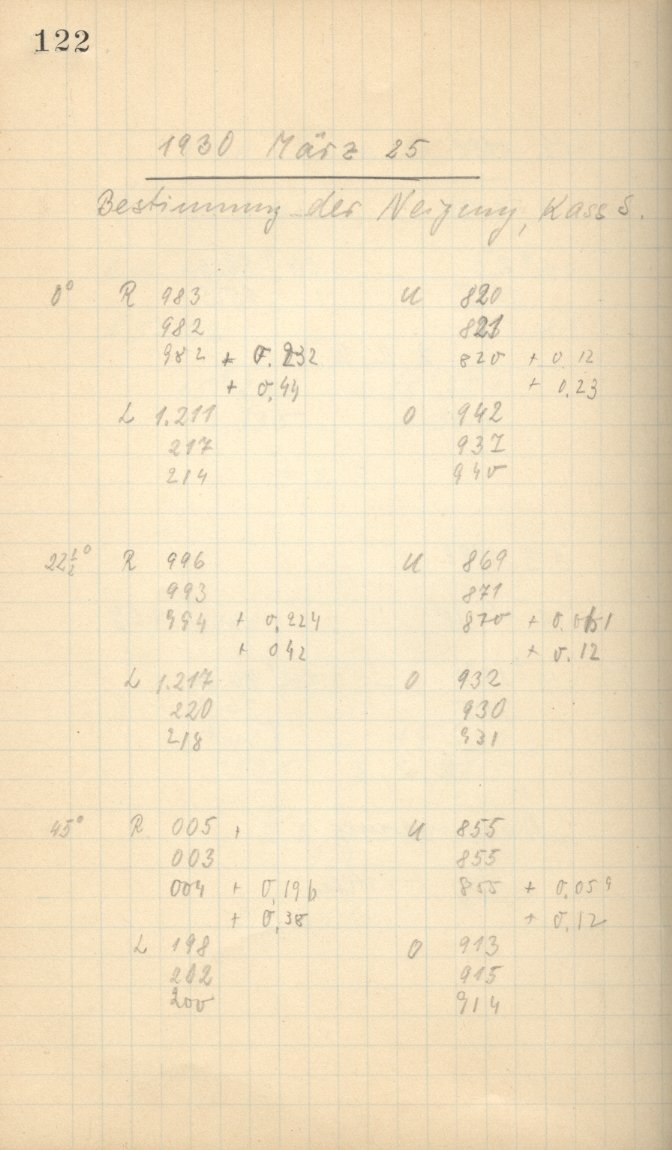 122
1930 März 25
Bestimmung der Neigung, Kass S.
0° R 983 U 820
982 821
982 + 0.232 820 + 0.12
+ 0,44 + 0.23
L 1.211 O 942
217 937
214 940
22½° R 996 U 869
993 871
994 + 0,224 870 + 0.061
+ 042 + 0.12
L 1.217 O 932
220 930
218 931
45° R 005 U 855
003 855
004 + 0,196 855 + 0,059
+ 0,38 + 0,12
L 198 O 913
202 915
200 914